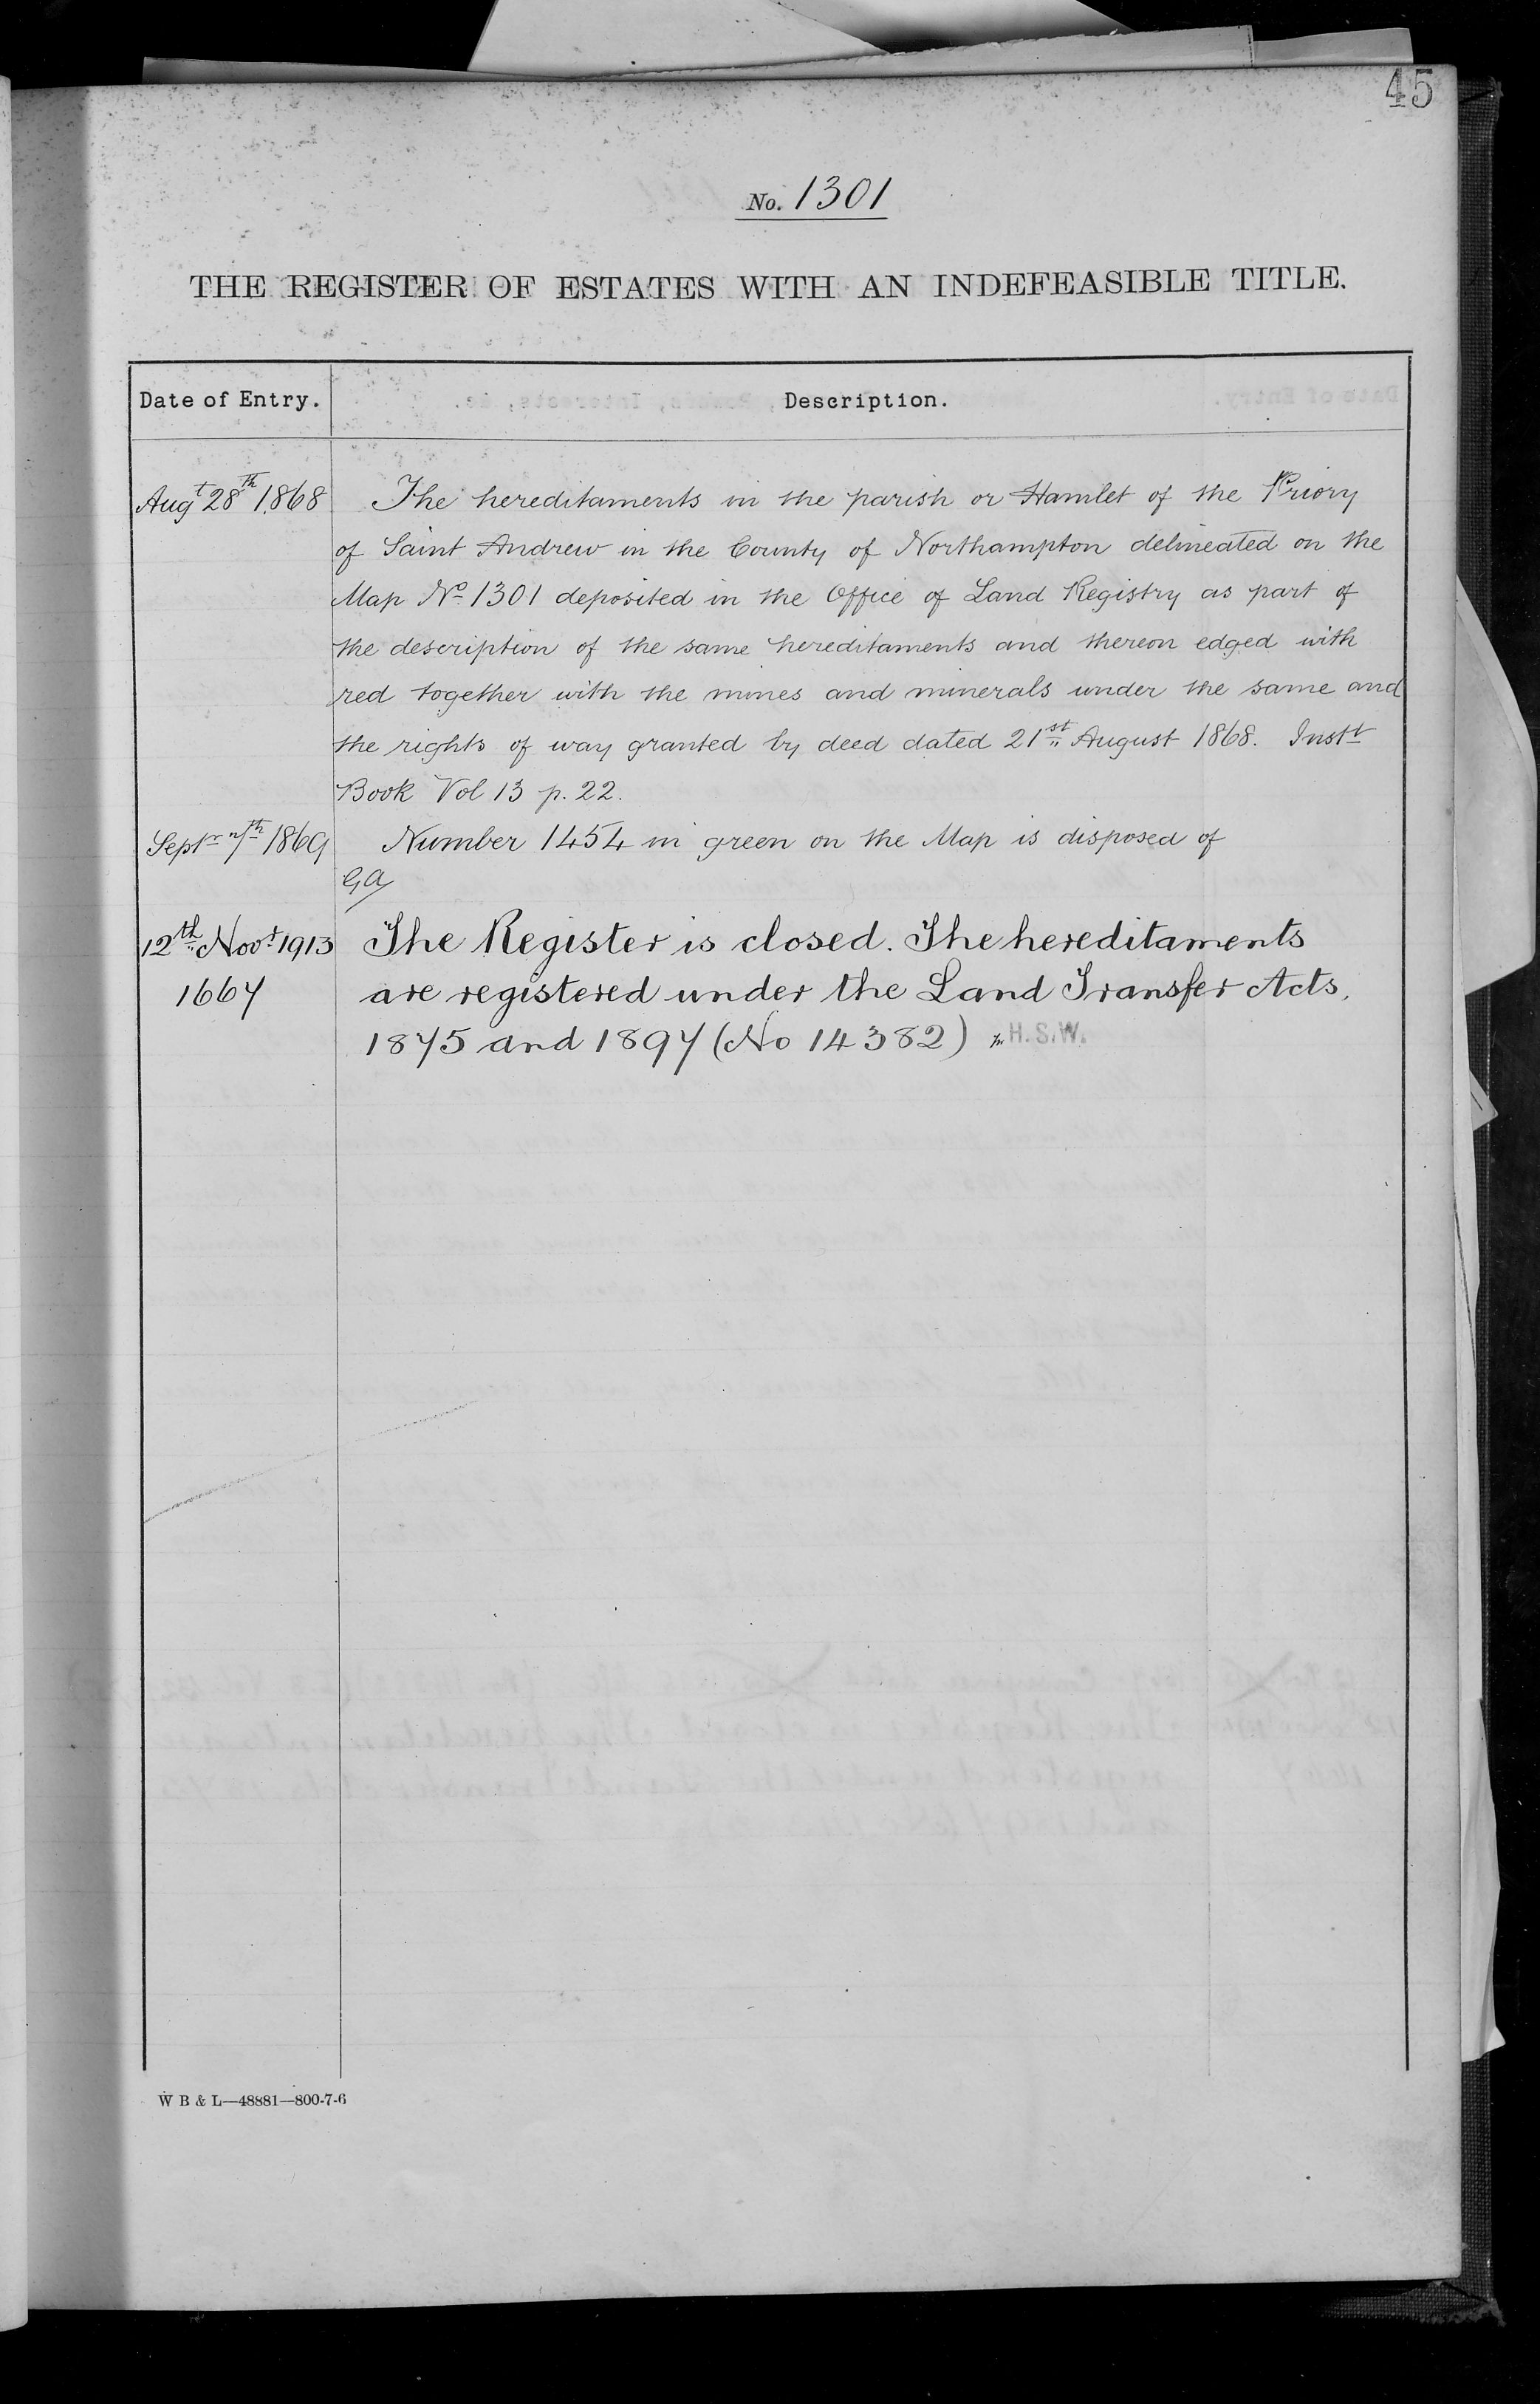 45
No. 1301
THE REGISTER OF ESTATES WITH AN INDEFEASIBLE TITLE.
Date of Entry. Description.
Augt 28th 1868 The hereditaments in the parish or Hamlet of the Priory
of Saint Andrew in the County of Northampton delineated on the
Map No 1301 deposited in the Office of Land Registry as part of
the description of the same hereditaments and thereon edged with
red together with the mines and minerals under the same and
the rights of way granted by deed dated 21st August 1868. Instt
Book Vol 13 p. 22.
Septr 7th 1869 Number 1454 in green on the Map is disposed of
GA
12th Novr 1913 The Register is closed. The hereditaments
1667 are registered under the Land Transfer Acts,
1875 and 1897 (No 14382) H.S.W.
W B & L—48881—800-7-6